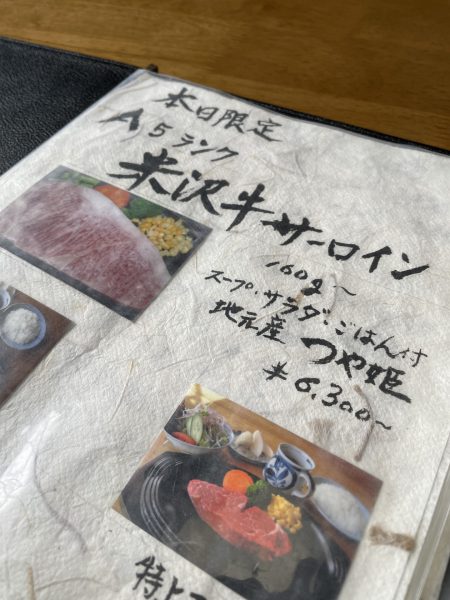 本日限定
A5ランク
米沢牛サーロイン
160g〜
スープ・サラダ・ごはん付
地元産 つや姫
¥6,300〜
特上